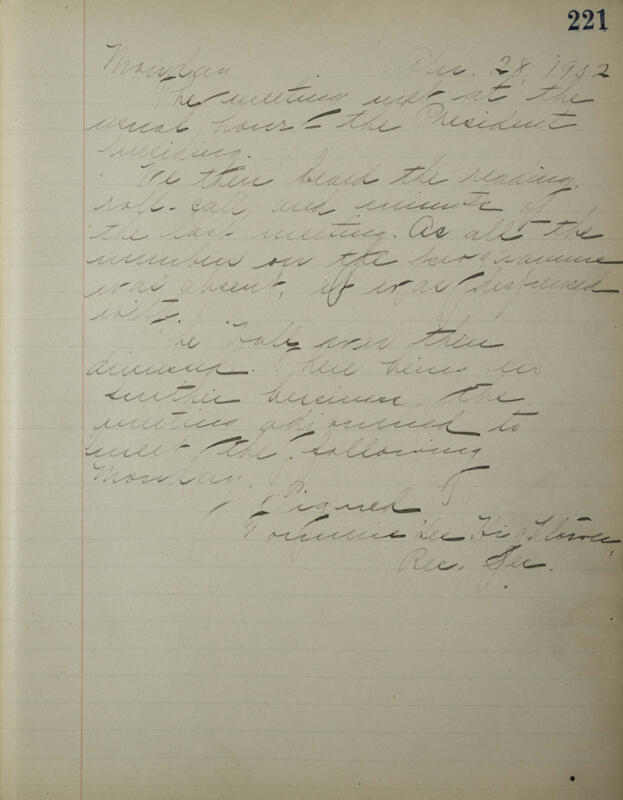 221
Monday 28, 1912
The meeting met at the
usual hour - the President
presiding.
We then heard the reading,
roll-call and minutes of
the last meeting. As all the
number on the programme
was absent, it was dispensed
with.
he Hall was then
discussed. There being no
further business the
meeting adjourned to
meet the following
Monday.
Signed
Tommie Lee Hightower,
Rec. Sec.